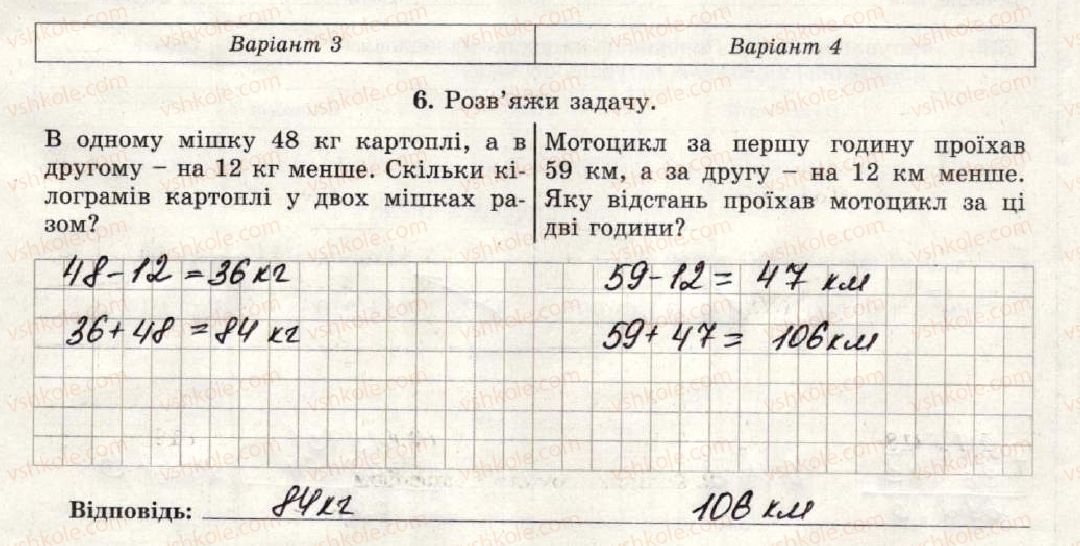 Варіант 3
Варіант 4
6. Розв'яжи задачу.
В одному мішку 48 кг картоплі, а в
другому – на 12 кг менше. Скільки кі-
лограмів картоплі у двох мішках ра-
зом?
Мотоцикл за першу годину проїхав
59 км, а за другу – на 12 км менше.
Яку відстань проїхав мотоцикл за ці
дві години?
48-12 = 36 кг
36+48 = 84 кг
59-12 = 47 км
59+47 = 106 км
Відповідь: 84 кг
106 км
vshkole.com